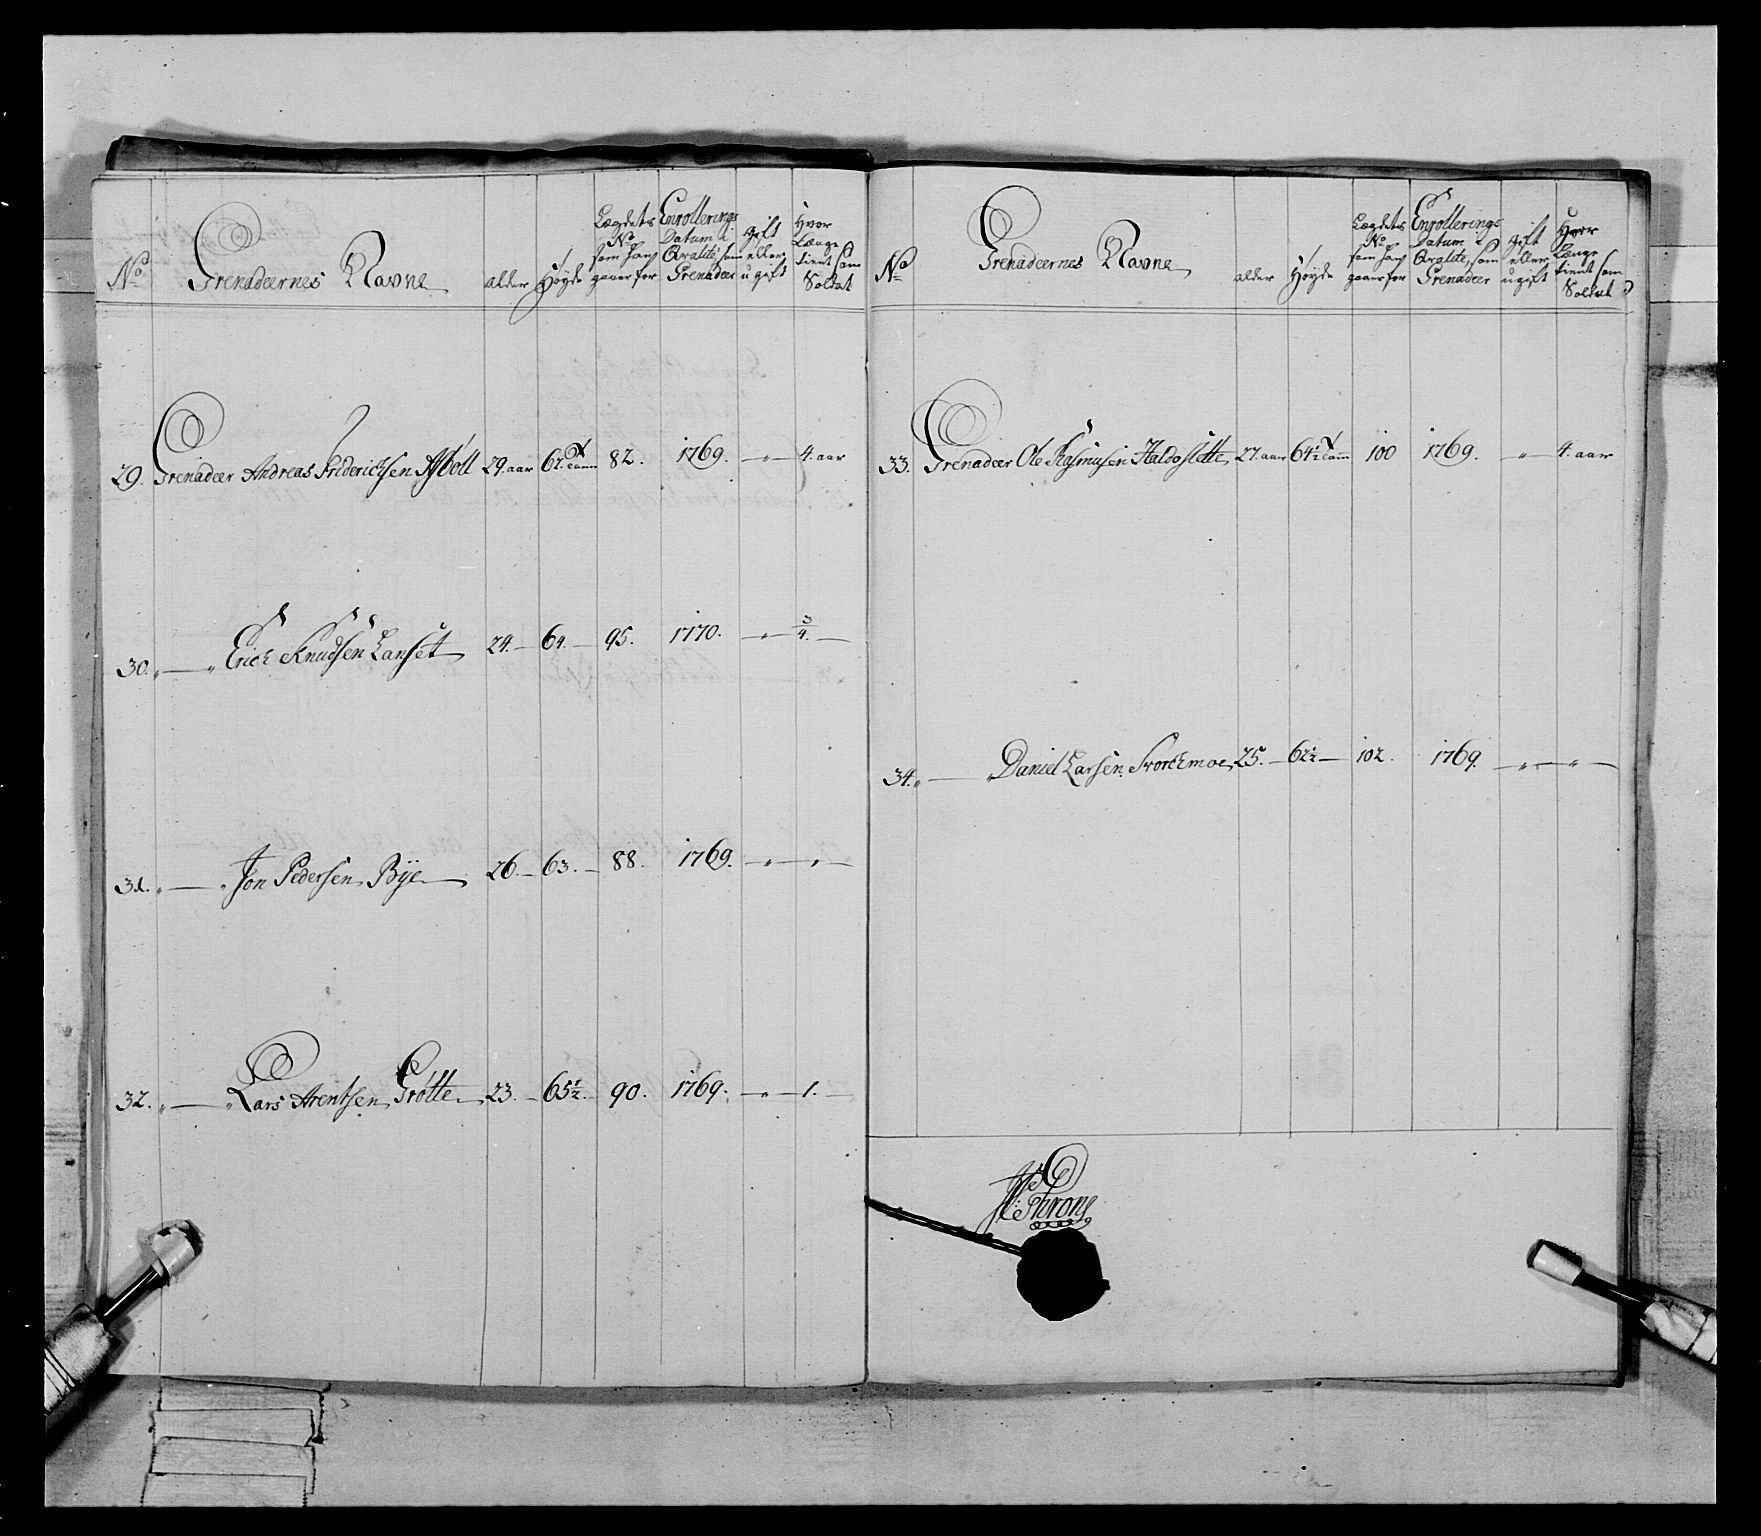 No Grenadeernes Navne alder Høyde Lægdets No som han gaaer for Enrollerings Datum i Qvalité som Grenadeer gift eller ugift Hvor Længe tient som Soldat
29. Grenadeer Andreas Friderichsen Aʃbøll 29. aar 62. Tomm 82. 1769. " 4. aar
30. " " Erich Knudsen Lanset 24. 64. 95. 1770. " 3/4.
31. " " Jon Pedersen Bye 26. 63. 88. 1769. " "
32. " " Lars Arentsen Grøtte 23. 65 1/2. 90. 1769. " 1.
No Grenadeernes Navne alder Høyde Lægdets No som han gaaer for Enrollerings Datum i Qvalité som Grenadeer gift eller ugift Hvor Længe tient som Soldat
33. Grenadeer Ole Rasmusen Haldoslette 27. aar 64 1/2 Tomm 100 1769. " 4. aar
34. " " Daniel Larsen Storchmoe 25. 62 1/2 102. 1769. " "